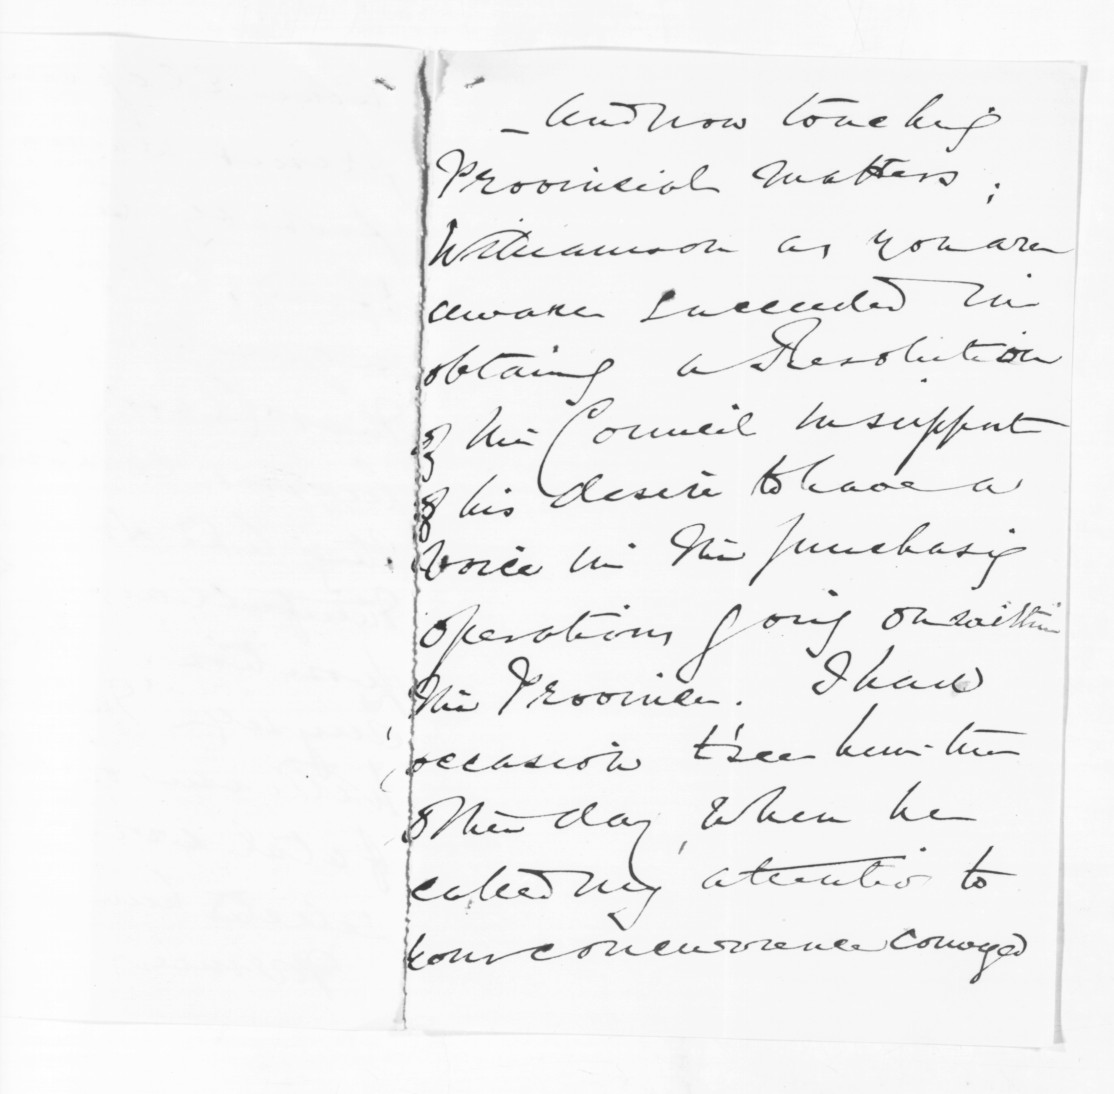 – And now touching
Provincial matters;
Williamson as you are
aware succeeded in
obtaining a Resolution
of the Council in support
of his desire to have a
voice in the purchasing
operations going on within
the Province. I had
occasion t'see him the
other day, when he
called my attention to
your concurrence conveyed